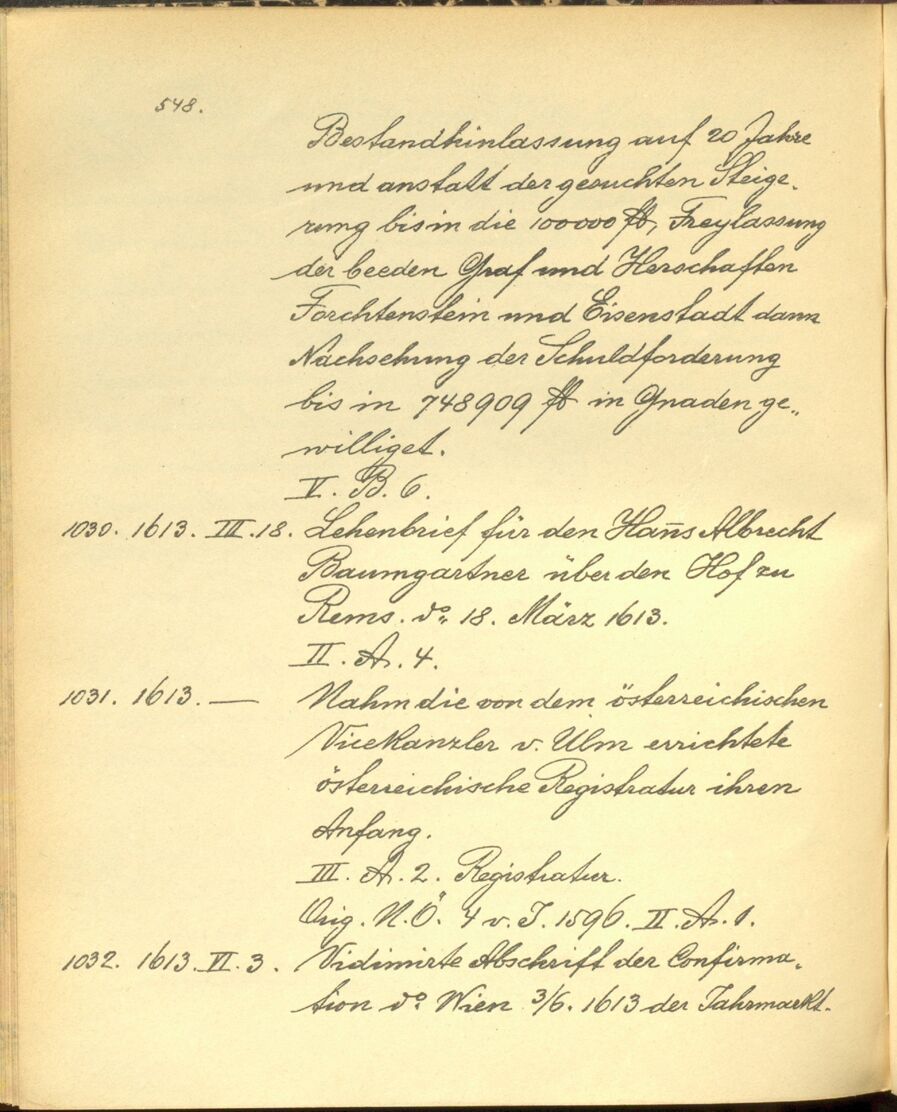 548.
Bestandhinlassung auf 20 Jahre
und anstatt der gesuchten Steige-
rung bis in die 100000 fl, Freylassung
der beeden Graf und Herschaften
Forchtenstein und Eisenstadt dann
Nachsehung der Schuldforderung
bis in 748909 fl in Gnaden ge„
williget.
V. B. 6.
1030. 1613. III. 18. Lehenbrief für den Han̄s Albrecht
Baumgartner über den Hof zu
Rems. do. 18. März 1613.
II. A. 4.
1031. 1613. — Nahm die von dem österreichischen
Vicekanzler v. Ulm errichtete
österreichische Registratur ihren
Anfang.
III. A. 2. Registratur.
Orig. N. Ö. 4 v. J. 1596. II. A. 1.
1032. 1613. VI. 3. Vidimirte Abschrift der Confirma-
tion do Wien 3/6. 1613 der Jahrmarkt-